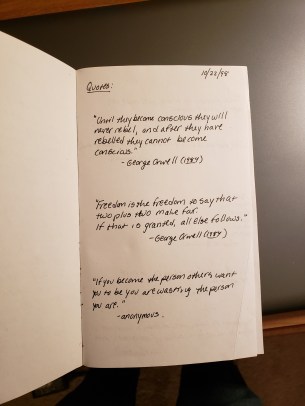 10/22/98
Quotes:
"Until they become conscious they will
never rebel, and after they have
rebelled they cannot become
conscious."
- George Orwell (1984)
"Freedom is the freedom to say that
two plus two make four.
If that is granted, all else follows."
- George Orwell (1984)
"If you become the person others want
you to be you are wasting the person
you are."
- anonymous.